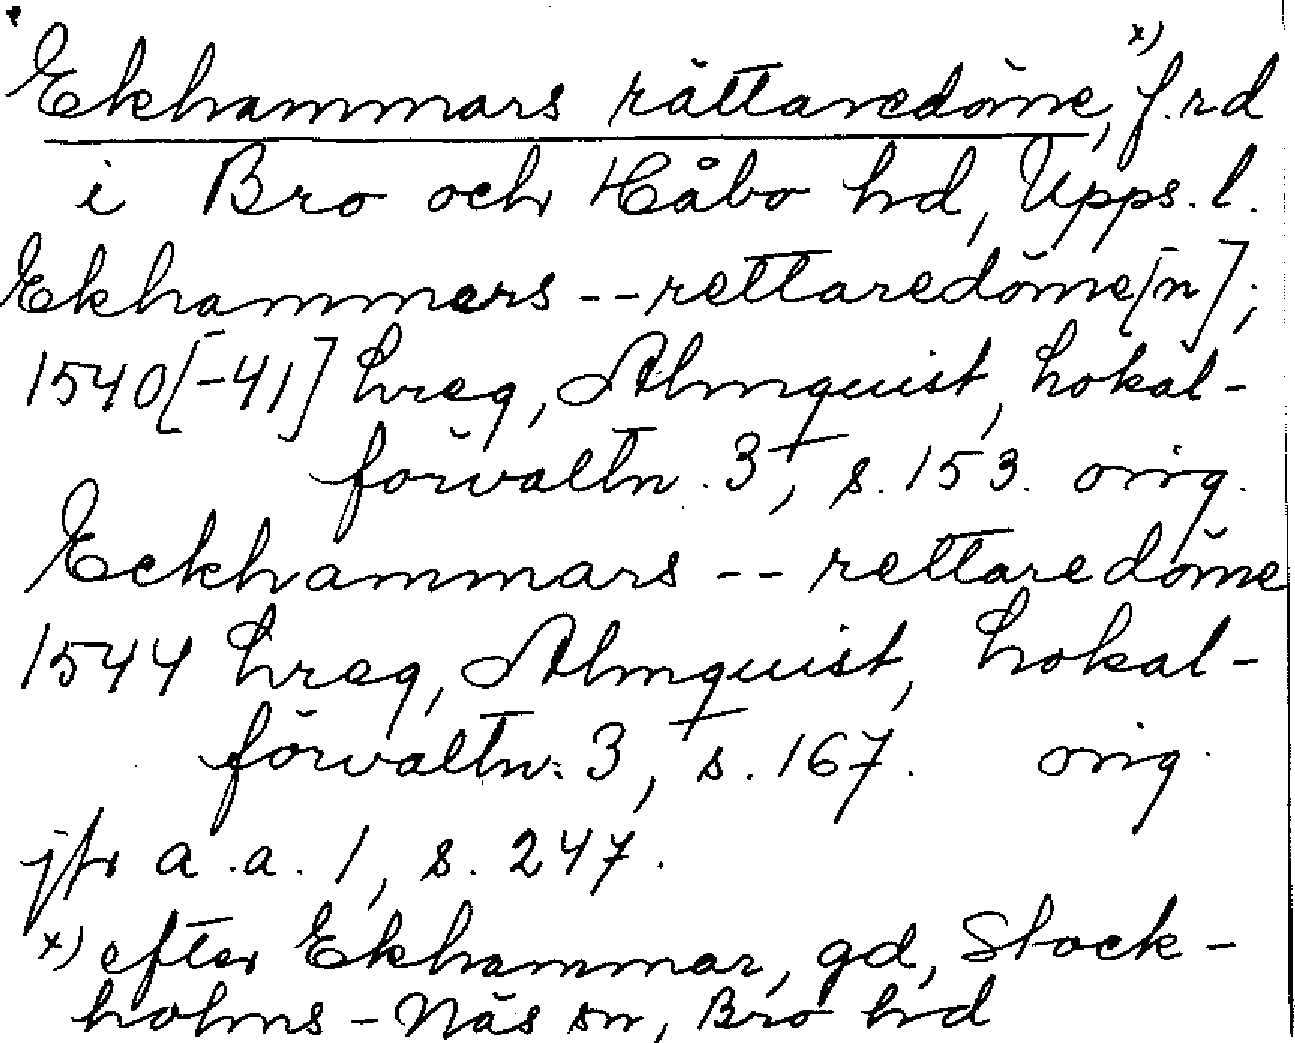 Ekhammars rättaredöme,ˣ⁾ f.rd
i Bro och Håbo hd, Upps. l.
Ekhammers -- rettaredöme[n];
1540[-41] Lreg, Almquist, Lokal-
förvaltn. 3, s. 153. orig.
Eckhammars -- rettaredöme
1544 Lreg, Almquist, Lokal-
förvaltn. 3, s. 167. orig.
jfr a.a. 1, s. 247.
x) efter Ekhammar, gd, Stock-
holms-Näs sn, Bro hd